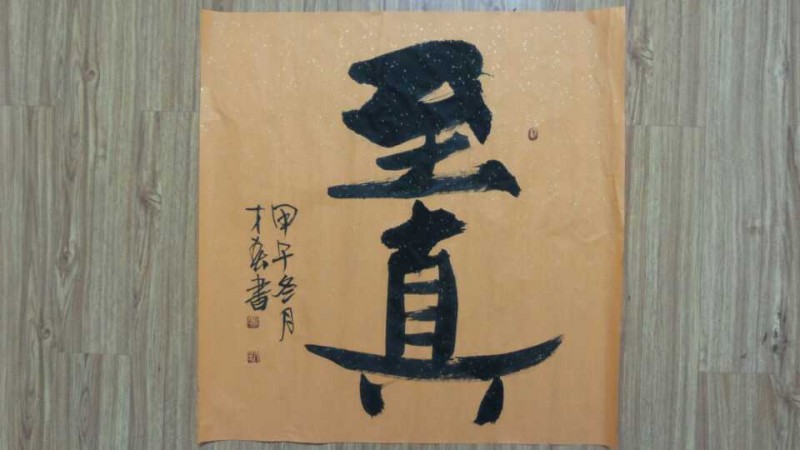 至真
甲午冬月
才森書